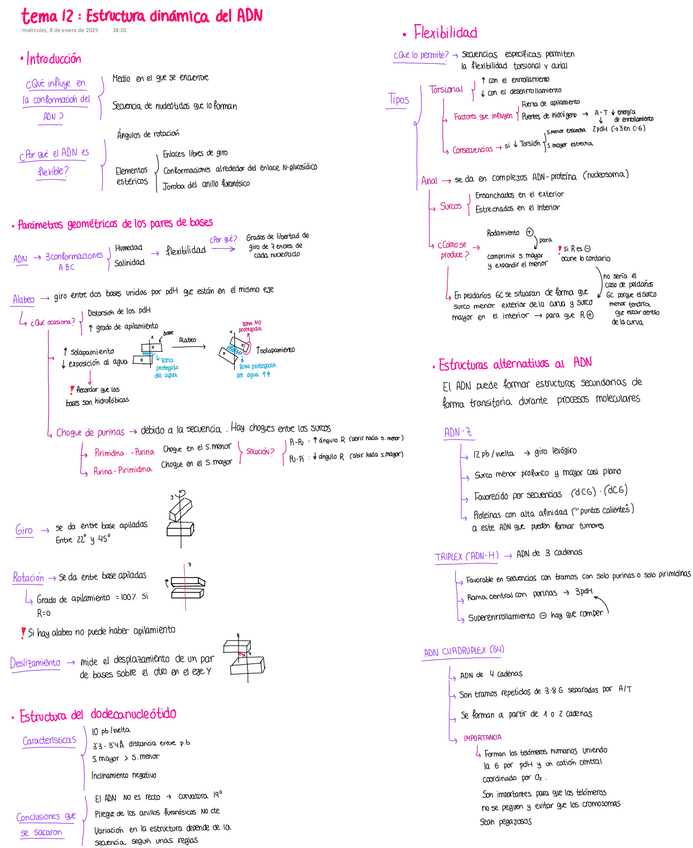 tema 12 : Estructura dinámica del ADN
miércoles, 8 de enero de 2025 18:01
• Introducción
¿Qué influye en
la conformación del
ADN?
Medio en el que se encuentre
Secuencia de nucleótidos que lo forman
¿Por qué el ADN es
flexible?
Ángulos de rotación
Elementos
estéricos
Enlaces libres de giro
Conformaciones alrededor del enlace N-glucosídico
Joroba del anillo furanósico
• Parámetros geométricos de los pares de bases
ADN → 3 conformaciones
A B C
Humedad
Salinidad
→ flexibilidad
¿Por qué?
Grados de libertad de
giro de 7 enlces de
cada nucleótido
Alabeo → giro entre dos bases unidas por pdH que están en el mismo eje
¿Qué ocasiona?
Distorsión de los pdH
↑ grado de apilamiento
↑ Solapamiento
↓ exposición al agua
! Recordar que las
bases son hidrofóbicas
base
Zona
protegida
del agua
Alabeo
Zona NO
protegida
Zona protegida
del agua ↑↑
↑solapamiento
Choque de purinas → debido a la secuencia. Hay choques entre los surcos
Pirimidina - Purina Choque en el S.menor
Purina-Pirimidina Choque en el S.mayor
SOLUCIÓN?
Pi-Pu : ↑ ángulo R (abrir hacia s. menor)
Pu-Pi : ↓ ángulo R (abrir hacia s.mayor)
Giro → se da entre base apiladas
Entre 22° y 45°
Rotación → Se da entre base apiladas
Grado de apilamiento = 100% si
R=0
! Si hay alabeo no puede haber apilamiento
Deslizamiento → mide el desplazamiento de un par
de bases sobre el otro en el eje Y
• Estructura del dodecanucleótido
Características
10 pb/vuelta
3'3 - 3'4 Å distancia entre p.b
S.mayor > S.menor
Inclinamiento negativo
Conclusiones que
se sacaron
El ADN NO es recto → curvatura 19°
Pliegue de los anillos furanósicos No cte
Variación en la estructura depende de la
secuencia según unas reglas
• Flexibilidad
¿Qué lo permite? → Secuencias específicas permiten
la flexibilidad torsional y axial
Tipos
Torsional
↑ con el enrollamiento
↓ con el desenrollamiento
Factores que influyen
Fuerza de apilamiento
Puentes de hidrógeno → A-T ↓ energía
de enrollamiento
2pdH (→3 en C-G)
Consecuencias → si ↓ Torsión
S.menor ensancha
S.mayor estrecha
Axial → se da en complejos ADN-proteína (nucleosoma)
Surcos
Ensanchados en el exterior
Estrechados en el interior
¿Cómo se
produce?
Rodamiento ⊕
para
comprimir s.mayor
y expandir el menor
! si R es ⊖
ocurre lo contrario
En peldaños GC se situaran de forma que
surco menor exterior de la curva y surco
mayor en el interior → para que R ⊕
no sería el
caso de peldaños
GC porque el surco
menor tendría
que estar dentro
de la curva.
• Estructuras alternativas al ADN
El ADN puede formar estructuras secundarias de
forma transitoria durante procesos moleculares
ADN-Z
12 pb/vuelta → giro levógiro
Surco menor profundo y mayor casi plano
Favorecido por secuencias (dCG)·(dCG)
Proteínas con alta afinidad ("puntos calientes")
a este ADN que pueden formar tumores
TRIPLEX (ADN-H) → ADN de 3 cadenas
Favorable en secuencias con tramos con solo purinas o solo pirimidinas
Rama central con purinas → 3pdH
Superenrrollamiento ⊖ hay que romper
ADN CUÁDRUPLEX (G4)
ADN de 4 cadenas
Son tramos repetidos de 3-8 G separados por A/T
Se forman a partir de 1 o 2 cadenas
IMPORTANCIA
Forman los telómeros humanos uniendo
la G por pdH y un catión central
coordinado por O₂.
Son importantes para que los telómeros
no se peguen y evitar que los cromosomas
sean pegajosos